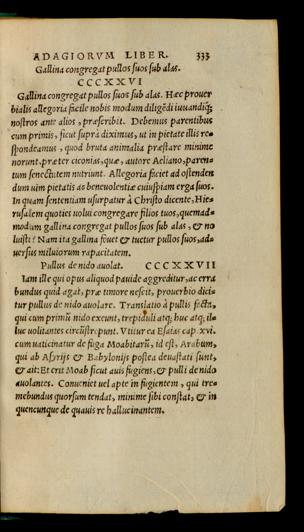 ADAGIORVM LIBER. 333
Gallina congregat pullos suos sub alas.
CCCXXVI
Gallina congregat pullos suos sub alas. Hæc prouer
bialis allegoria facile nobis modum diligēdi iuuandiq́;
nostros ante alios , præscribit. Debemus parentibus
cum primis, sicut suprà diximus, ut in pietate illis re=
spondeamus , quod bruta animalia præstare minime
norunt, præter ciconias, quæ, autore Aeliano, paren=
tum senectutem nutriunt. Allegoria faciet ad ostenden
dum uim pietatis ac beneuolentiæ cuiuspiam erga suos.
In quam sententiam usurpatur à Christo dicente, Hie=
rusalem quoties uolui congregare filios tuos, quemad=
modum gallina congregat pullos suos sub alas , & no
luisti? Nam ita gallina fouet & tuetur pullos suos, ad=
uersus miluiorum rapacitatem.
Pullus de nido auolat. CCCXXVII
Iam ille qui opus aliquod pauide aggreditur, ac erra
bundus quid agat, præ timore nescit, prouerbio dici=
tur pullus de nido auolare. Translatio à pullis ficta,
qui cum primū nido exeunt, trepiduli atq; huc atq; il=
luc uolitantes circūstrepunt. Vtitur ea Esaias cap. xvi.
cum uaticinatur de fuga Moabitarū, id est, Arabum,
qui ab Assyrijs & Babylonijs postea deuastati sunt,
& ait: Et erit Moab sicut auis fugiens, & pulli de nido
auolantes. Conueniet uel apte in fugientem , qui tre=
mebundus quorsum tendat, minime sibi constat, & in
quencunque de quauis re hallucinantem.